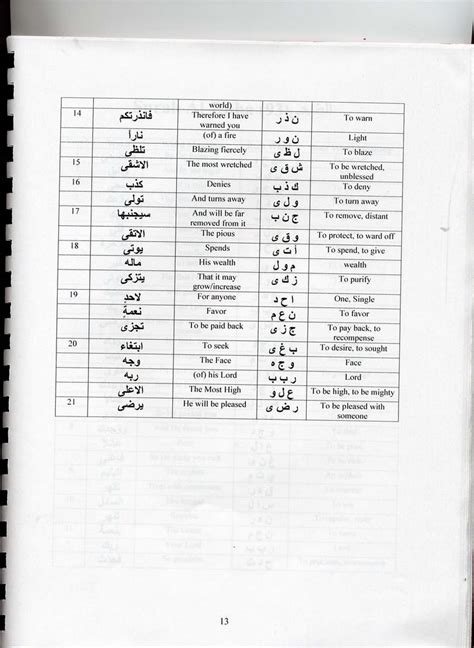 world)
14 فانذرتكم Therefore I have warned you ن ذ ر To warn
ناراً (of) a fire ن و ر Light
تلظى Blazing fiercely ل ظ ى To blaze
15 الاشقى The most wretched ش ق ى To be wretched, unblessed
16 كذب Denies ك ذ ب To deny
تولى And turns away و ل ى To turn away
17 سيجنبها And will be far removed from it ج ن ب To remove, distant
الاتقى The pious و ق ى To protect, to ward off
18 يوتى Spends أ ت ى To spend, to give
ماله His wealth م و ل wealth
يتزكى That it may grow/increase ز ك ى To purify
19 لاحد For anyone ا ح د One, Single
نعمةٍ Favor ن ع م To favor
تجزى To be paid back ج ز ى To pay back, to recompense
20 ابتغاء To seek ب غ ى To desire, to sought
وجه The Face و ج ه Face
ربه (of) his Lord ر ب ب Lord
الاعلى The Most High ع ل و To be high, to be mighty
21 يرضى He will be pleased ر ض ى To be pleased with someone
13